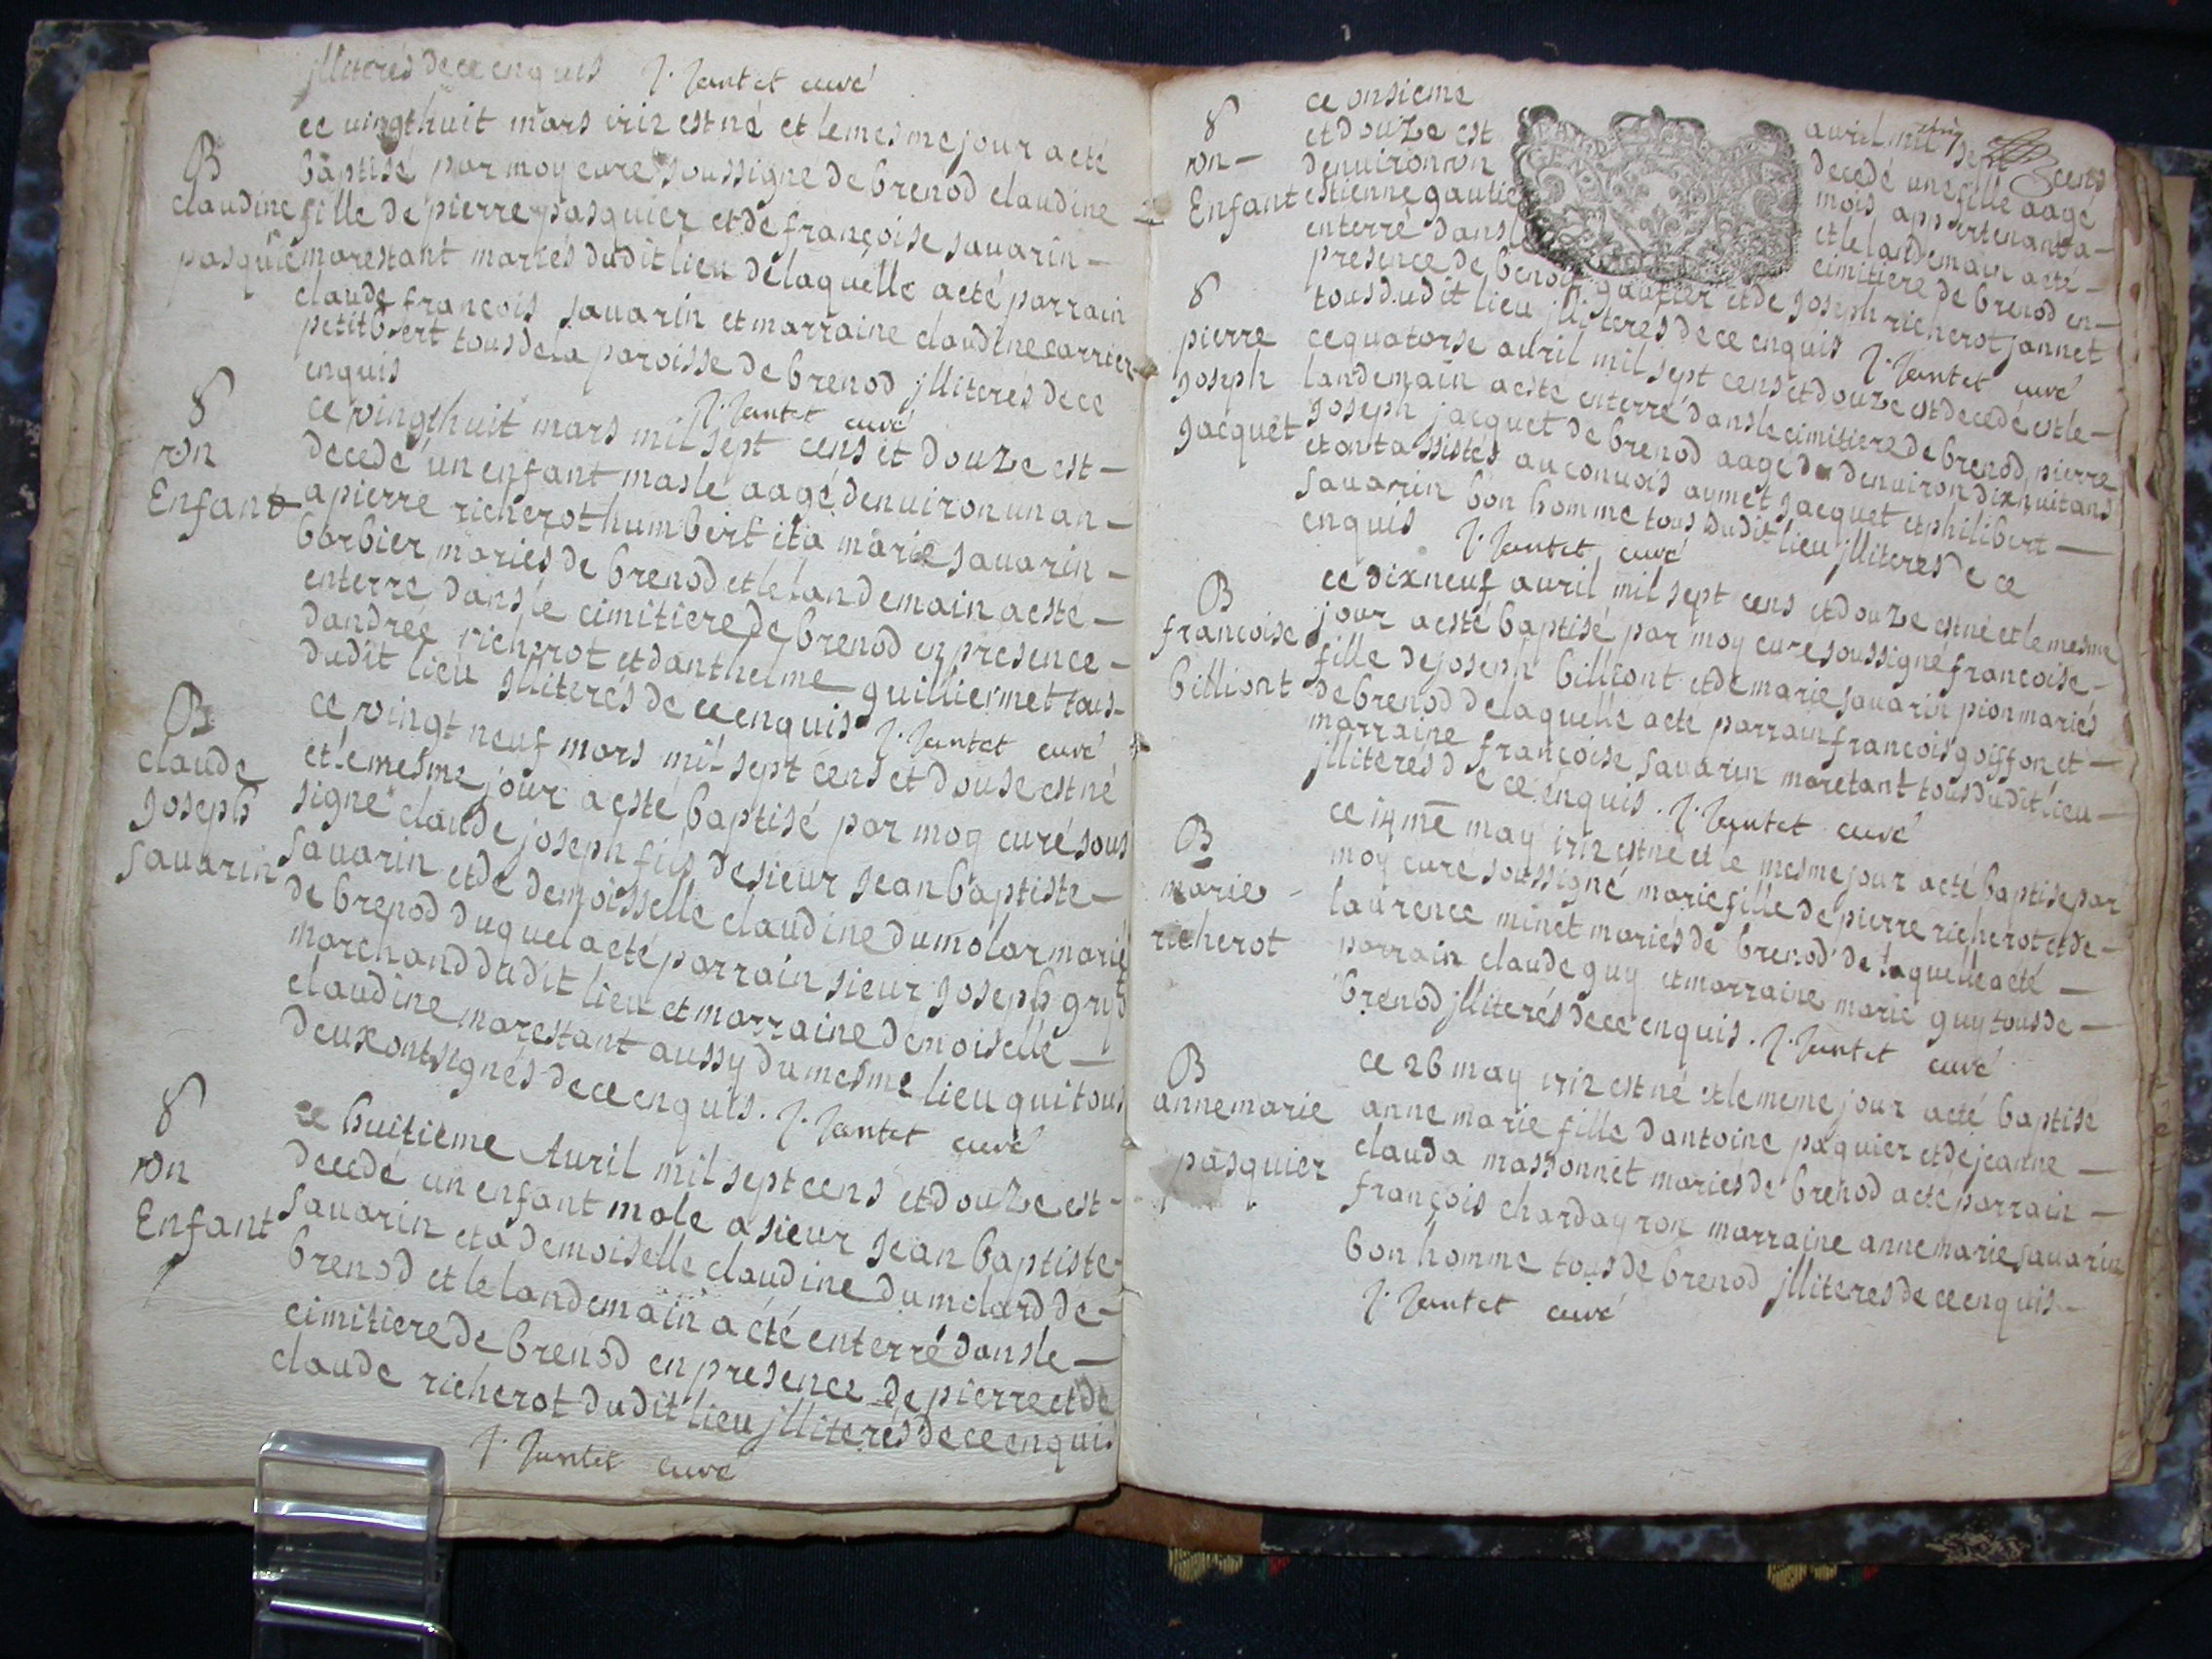 jlliterés de ce enquis J. Jantet curé
B
claudine
pasquie
ce vingthuit mars 1712 est né et le mesme jour a eté
baptisé par moy curé soussigné de brenod claudine
fille de pierre pasquier et de françoise sauarin
morestant mariés dudit lieu de laquelle a eté parrain
claude françois sauarin et marraine claudine carrier
petitbert tous de la paroisse de brenod jlliterés de ce
enquis J. Jantet curé
8
vn
Enfant
ce vingthuit mars mil sept cens et douze est
decedé un enfant masle aagé denuiron un an
a pierre richerot humbert et a marie sauarin
barbier mariés de brenod et le landemain a esté
enterre dans le cimitiere de brenod en presence
dandrée richerot et danthelme guilliermet tous
dudit lieu jlliterés de ce enquis J. Jantet curé
B
claude
Joseph
Sauarin
ce vingt neuf mars mil sept cens et douse est né
et le mesme jour a esté baptisé par moy curé sous
signé claude joseph fils de sieur Jean baptiste
sauarin et de demoisselle claudine dumolar marié
de brenod duquel a eté parrain sieur Joseph gryd
marchand dudit lieu et marraine demoiselle
claudine morestant aussy du mesme lieu qui tous
deux ont signés de ce enquis. J. Jantet curé
8
vn
Enfant
ce huitieme Auril mil sept cens et douze est
decedé un enfant male a sieur Jean baptiste
sauarin et a demoiselle claudine dumolard de
brenod et le landemain a eté enterré dans le
cimitiere de brenod en presence de pierre et de
claude richerot dudit lieu jlliterés de ce enquis
J. Jantet curé
8
vn
Enfant
ce onsieme auril mil sept cens
et douze est decedé une fille aagé
denuiron vn mois appertenant a
estienne gautie et le landemain a eté
enterré dans le cimitiere de brenod en
presence de benoit gautier et de Joseph richerot jannet
tous dudit lieu jlliterés de ce enquis J. Jantet curé
8
pierre
Joseph
Jacquet
ce quatorse auril mil sept cens et douze est decedé est le
landemain a esté enterré dans le cimitiere de brenod pierre
Joseph jacquet de brenod aagé denuiron dixhuit ans
et ont assistés au conuois aymet Jacquet et philibert
sauarin bon homme tous dudit lieu jlliteres de ce
enquis J. Jantet curé
B
francoise
billiont
ce dixneuf auril mil sept cens et douze est né et le mesme
jour a esté baptisé par moy curé soussigné francoise
fille de joseph billiont et de marie sauarin pion mariés
de brenod de laquelle a eté parrain francois goiffon et
marraine francoise sauarin moretant tous dudit lieu
jlliterés de ce enquis. J. Jantet curé
B
marie
richerot
ce 14 me may 1712 est né et le mesme jour a eté baptise par
moy curé soussigné marie fille de pierre richerot et de
laurence minet mariés de brenod de laquelle a eté
parrain claude guy et marraine marie guy tous de
brenod jlliterés de ce enquis. J. Jantet curé
B
annemarie
pasquier
ce 26 may 1712 est né et le meme jour a eté baptisé
anne marie fille dantoine paquier et de jeanne
clauda massonnet mariés de brenod a eté parrain
françois chardayron marraine anne marie sauarin
bon homme tous de brenod jlliteres de ce enquis
J. Jantet curé